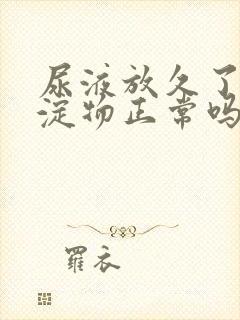 尿液放久了
淀物正常吗
羅衣